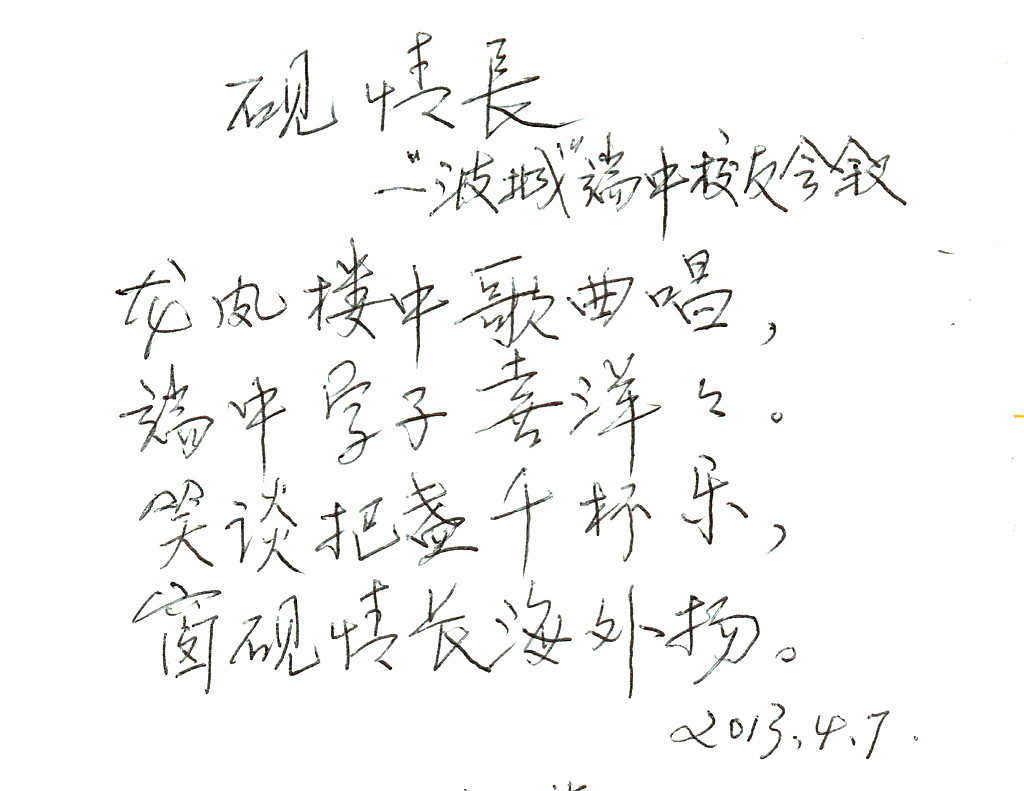 砚情長
—"波城"端中校友会叙
龙凤楼中歌曲唱，
端中学子喜洋々。
笑谈把盏千杯乐，
窗砚情长海外扬。
2013.4.7.